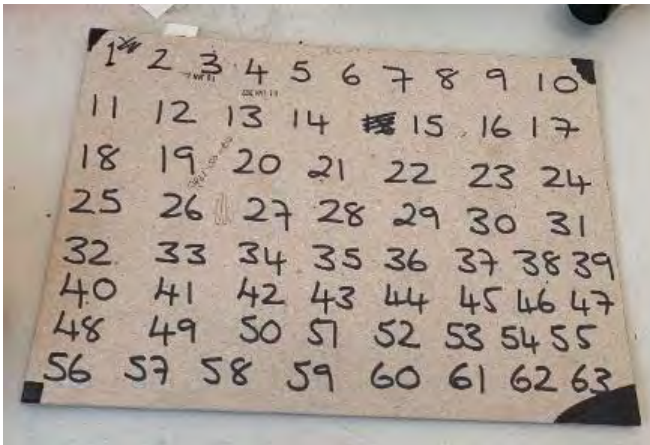 1 2 3 4 5 6 7 8 9 10
11 12 13 14 15 16 17
18 19 20 21 22 23 24
25 26 27 28 29 30 31
32 33 34 35 36 37 38 39
40 41 42 43 44 45 46 47
48 49 50 51 52 53 54 55
56 57 58 59 60 61 62 63